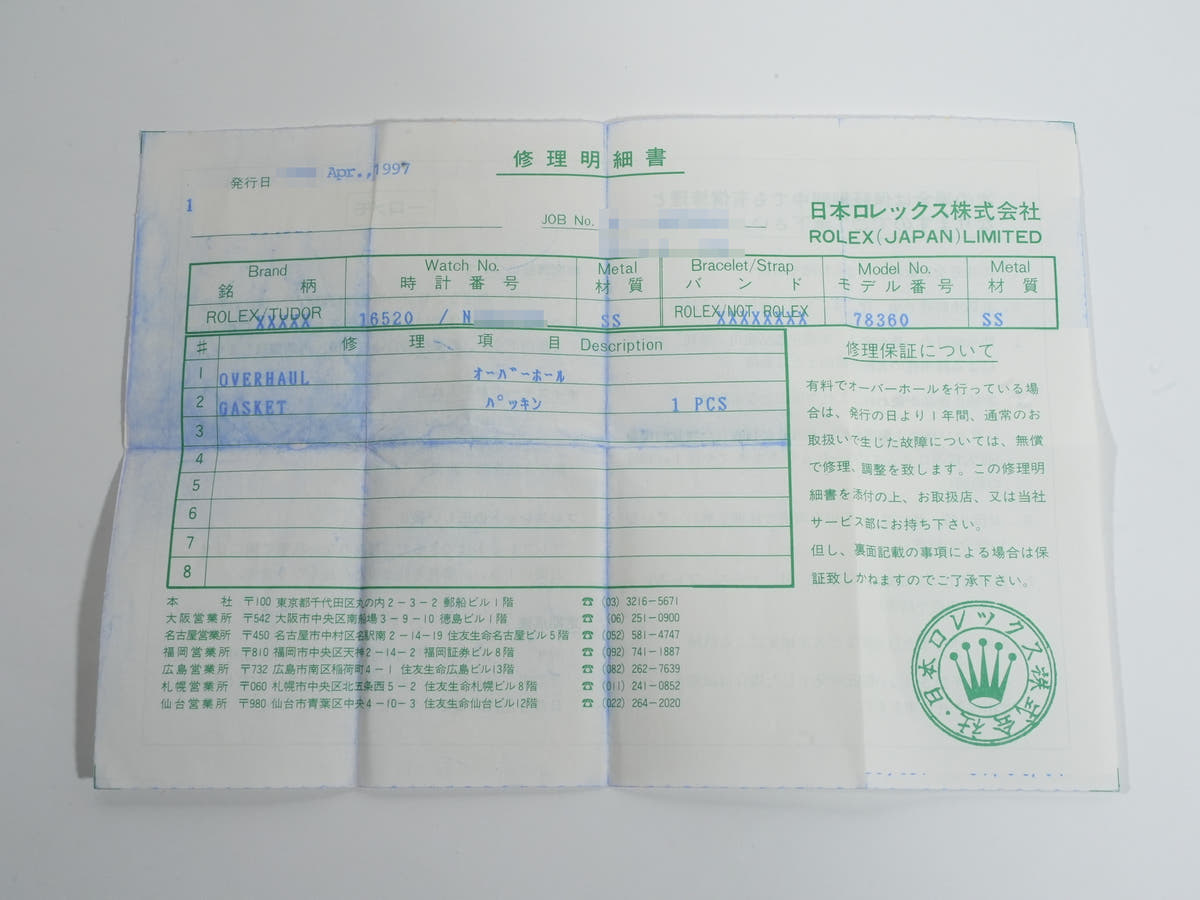 修理明細書
発行日 Apr.,1997
1
JOB No.
日本ロレックス株式会社
ROLEX(JAPAN)LIMITED
Brand Watch No. Metal Bracelet/Strap Model No. Metal
銘柄 時計番号 材質 バンド モデル番号 材質
ROLEX/TUDOR ROLEX/NOT ROLEX
XXXXX 16520 / N SS XXXXXXXX 78360 SS
# 修理項目 Description
1 OVERHAUL オーバーホール
2 GASKET パッキン 1 PCS
3
4
5
6
7
8
修理保証について
有料でオーバーホールを行っている場
合は、発行の日より1年間、通常のお
取扱いで生じた故障については、無償
で修理、調整を致します。この修理明
細書を添付の上、お取扱店、又は当社
サービス部にお持ち下さい。
但し、裏面記載の事項による場合は保
証致しかねますのでご了承下さい。
本社 〒100 東京都千代田区丸の内2-3-2 郵船ビル1階 ☎ (03) 3216-5671
大阪営業所 〒542 大阪市中央区南船場3-9-10 徳島ビル1階 ☎ (06) 251-0900
名古屋営業所 〒450 名古屋市中村区名駅南2-14-19 住友生命名古屋ビル5階 ☎ (052) 581-4747
福岡営業所 〒810 福岡市中央区天神2-14-2 福岡証券ビル8階 ☎ (092) 741-1887
広島営業所 〒732 広島市南区稲荷町4-1 住友生命広島ビル13階 ☎ (082) 262-7639
札幌営業所 〒060 札幌市中央区北五条西5-2 住友生命札幌ビル8階 ☎ (011) 241-0852
仙台営業所 〒980 仙台市青葉区中央4-10-3 住友生命仙台ビル12階 ☎ (022) 264-2020
日本ロレックス株式会社・